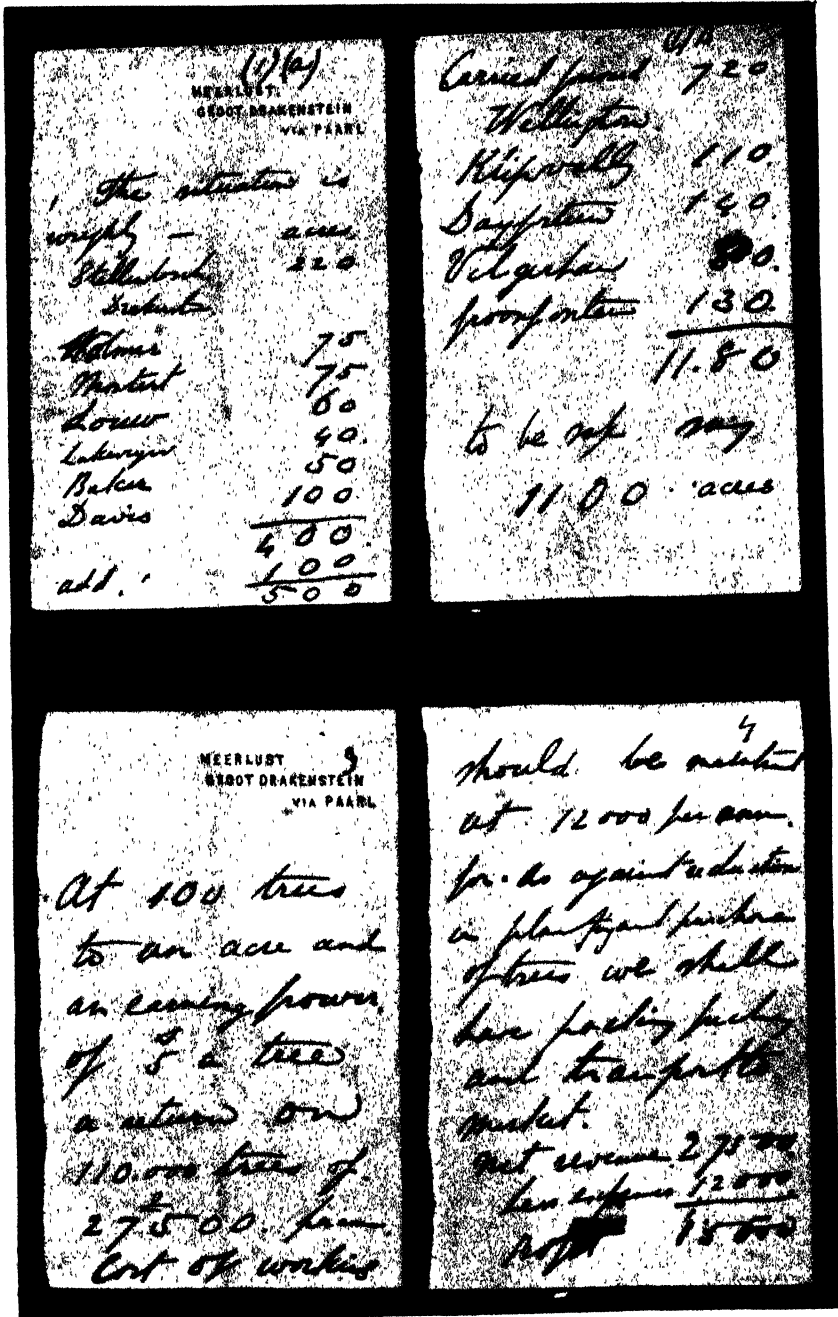 (1)(a)
MEERLUST.
GROOT DRAKENSTEIN
VIA PAARL
The situation is
roughly — acres
Stellenbosch 220
District
75
Mostert 75
Louw 60
40.
Baker 50
Davis 100
400.
add. 100
500
Carried forward 720
Wellington.
Klipvally 110.
140.
0.
130
11.80
to be safe say
1100 acres
3
MEERLUST
GROOT DRAKENSTEIN
VIA PAARL
At 100 trees
to an acre and
an earning power
of 5 a tree
a return on
110.000 trees of
27500
Cost of working
4
should be
at 12000 per ann.
for. as against reduction
in planting and purchase
of trees we shall
have packing
and transport to
market.
net revenue. 27500
Less expenses 12000
Profit 15000